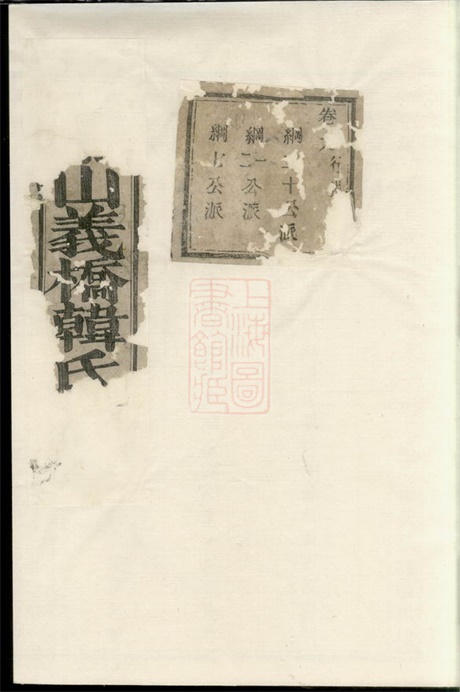 卷行
綱十公派
綱二公派
綱七公派
山義橋韓氏
上海圖
書館藏